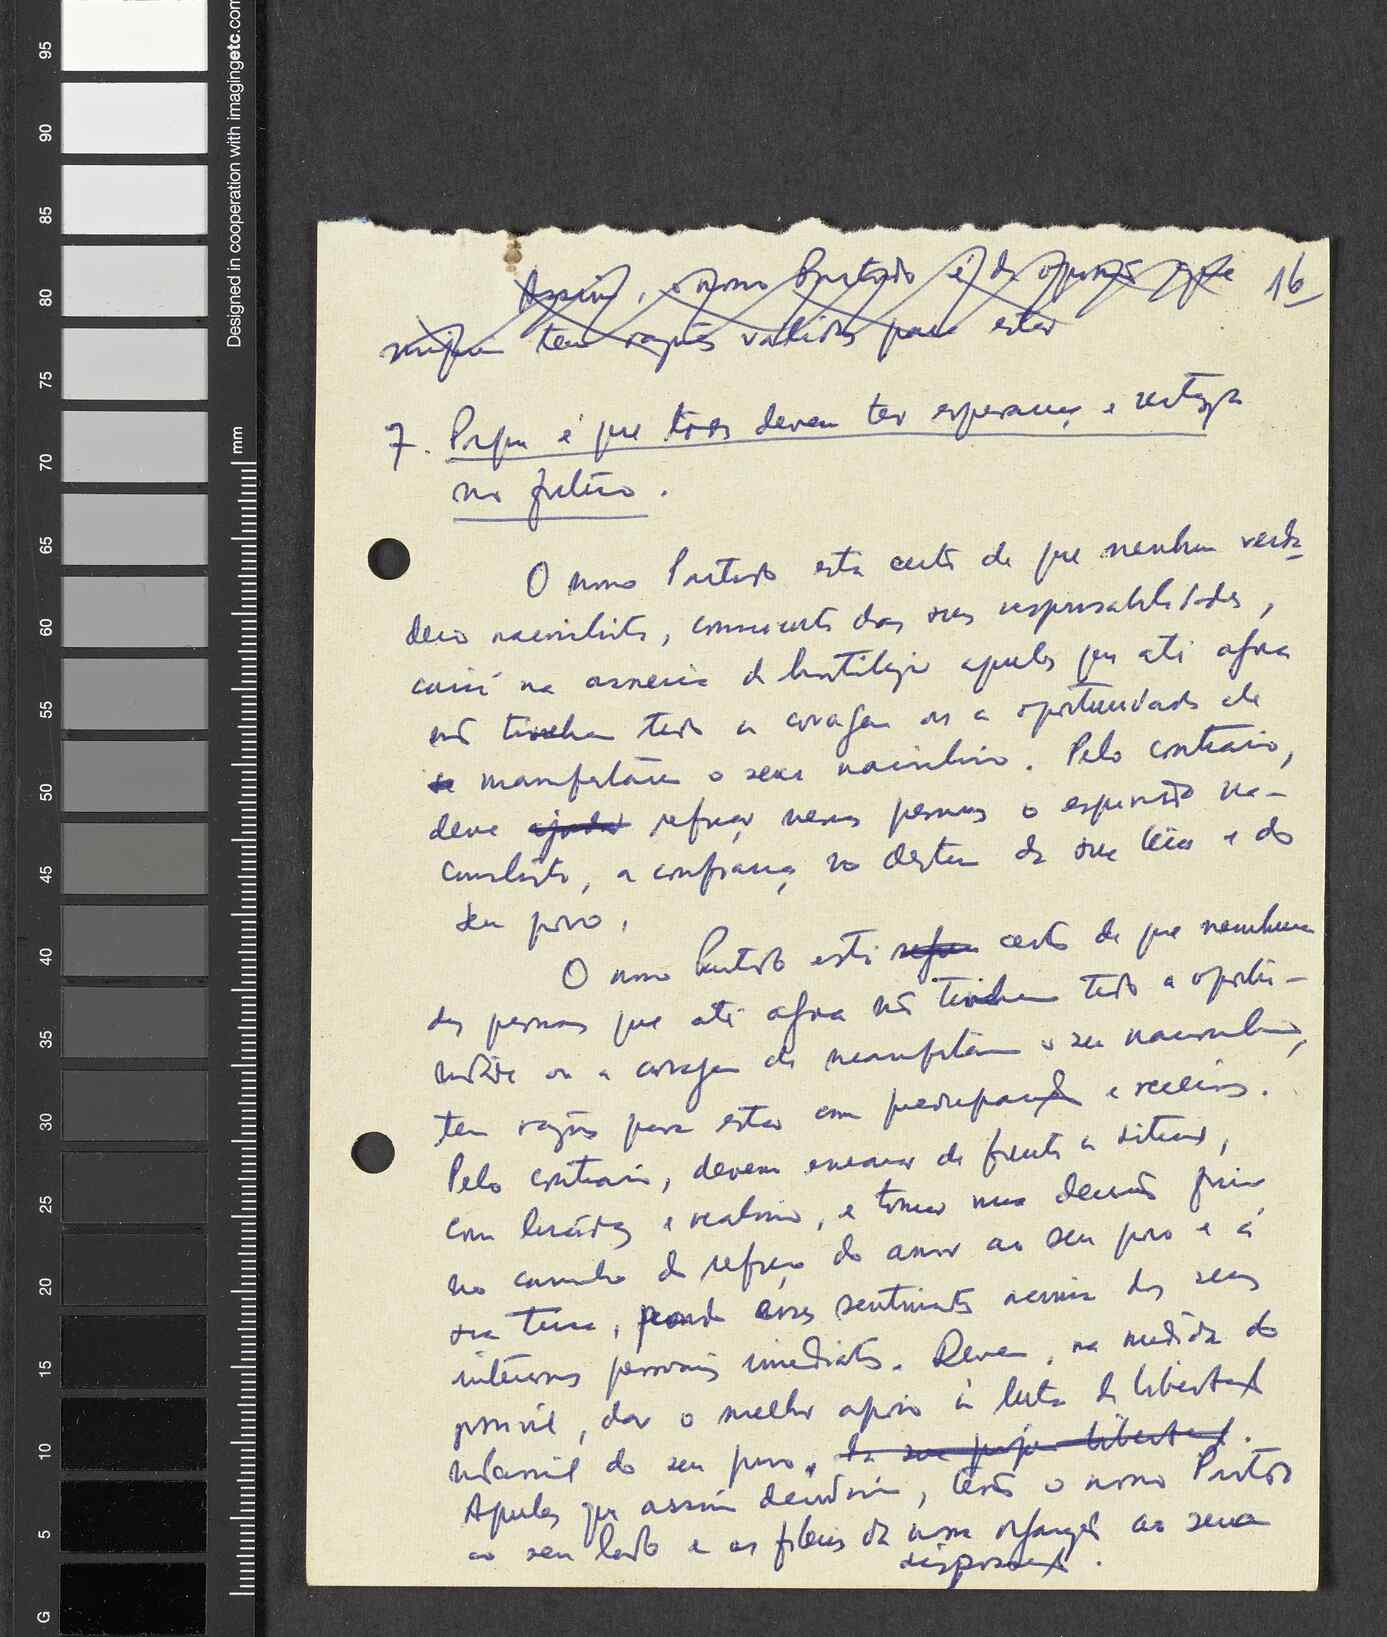 95
90
85
80
75
70
65
60
55
50
45
40
35
30
25
20
15
10
5
G
Designed in cooperation with imagingetc.com
mm
16
Assim, o nosso Partido é da opinião que
ninguém tem razões validas para estar
7. Porque é que todos devem ter esperança e certeza
no futuro.
O nosso Partido está certo de que nenhum verda
deiro nacionalista, consciente das suas responsabilidades,
cairá na asneira de hostilizar aqueles que até agora
não tinham tido a coragem ou a oportunidade de
se manifestarem o seu nacionalismo. Pelo contrário,
deve ajudar reforçar nessas pessoas o espírito na-
cionalista, a confiança no destino da sua terra e do
seu povo.
O nosso Partido está certo de que nenhuma
das pessoas que até agora não tinham tido a oportu-
nidade ou a coragem de manifestarem o seu nacionalismo,
tem razões para estar com preocupações e receios.
Pelo contrário, devem encarar de frente a situação,
com lucidez e realismo, e tomar uma decisão firme
no caminho do reforço do amor ao seu povo e à
sua terra, pondo esses sentimentos acima dos seus
interesses pessoais imediatos. Devem, na medida do
possível, dar o melhor apoio à luta de libertação
nacional do seu povo. da sua própria libertação.
Aqueles que assim decidirem, terão o nosso Partido
ao seu lado e as fileiras da nossa organização ao seu
dispor.